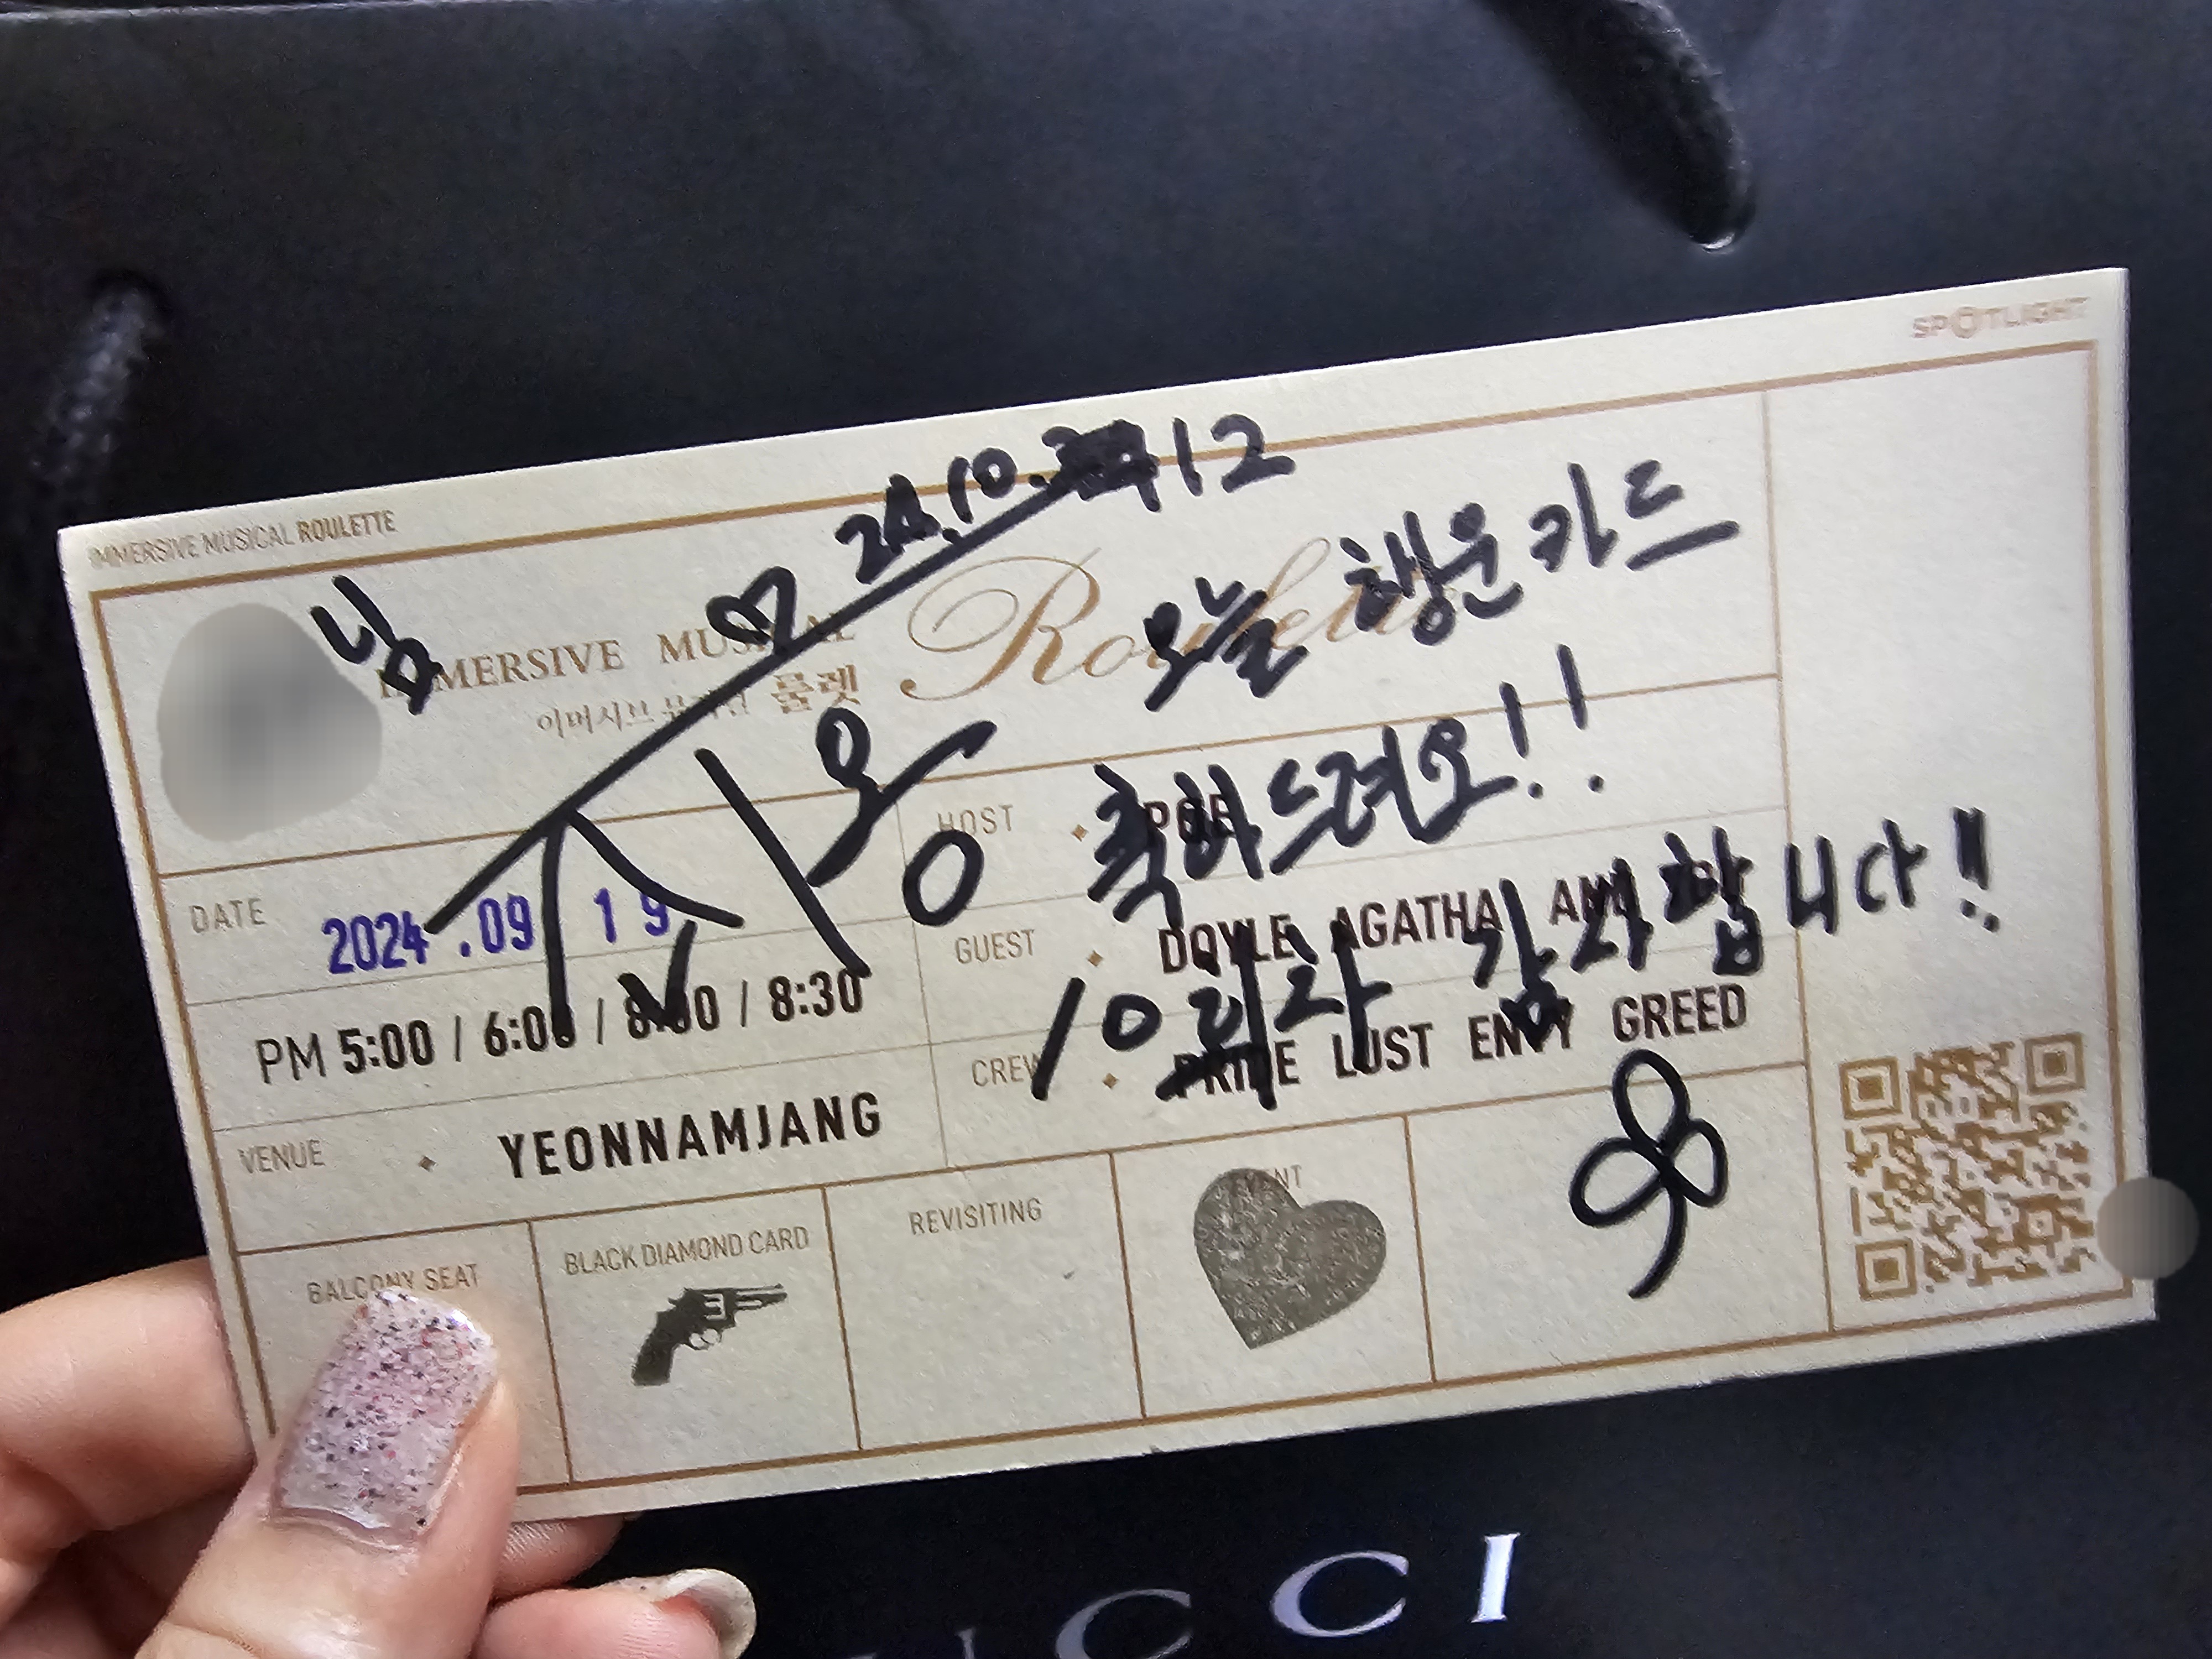 SPOTLIGHT
IMMERSIVE MUSICAL ROULETTE
24.10. 12
님 ♡
IMMERSIVE MUSICAL Roulette
이머시브 뮤지컬 룰렛
오늘 행운카드
축하드려요!!
HOST
DATE 2024.09 19
GUEST DOYLE AGATHA
감사합니다!!
PM 5:00 / 6:00 / 8:00 / 8:30
CREW PRIDE LUST ENVY GREED
VENUE YEONNAMJANG
BALCONY SEAT
BLACK DIAMOND CARD
REVISITING
EVENT
UCCI